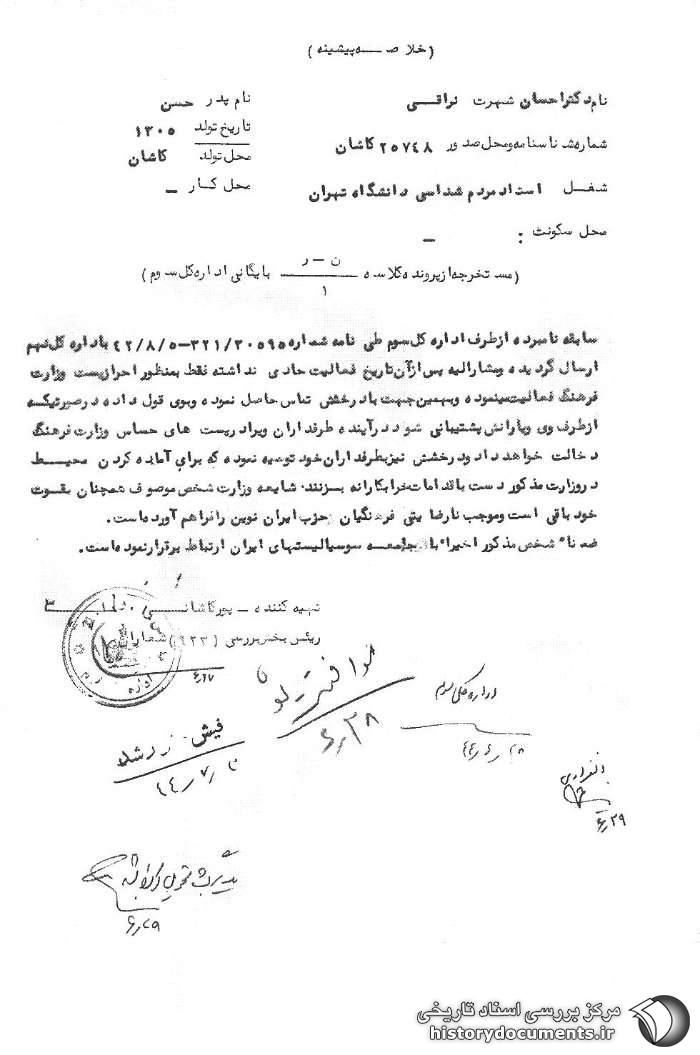 (خلاصه پیشینه)
نام دکتر احسان شهرت نراقی
نام پدر حسن
شماره شناسنامه و محل صدور ۲۵۷۴۸ کاشان
تاریخ تولد ۱۳۰۵
محل تولد کاشان
شغل استاد مردم شناسی دانشگاه تهران
محل کار –
محل سکونت : –
(مستخرجه از پرونده کلاسه ن – ر / ۱ بایگانی اداره کل سوم)
سابقه نامبرده از طرف اداره کل سوم طی نامه شماره ۳۲۱/۳۰۵۹۵–۴۲/۸/۵ باداره کل نهم
ارسال گردیده و مشارالیه پس از آن تاریخ فعالیت حادی نداشته فقط بمنظور احراز پست وزارت
فرهنگ فعالیت مینموده و بهمین جهت با درخشش تماس حاصل نموده و بوی قول داده در صورتیکه
از طرف وی و یارانش پشتیبانی شود در آینده طرفداران ویرا در پست های حساس وزارت فرهنگ
دخالت خواهد داد و درخشش نیز بطرفداران خود توصیه نموده که برای آماده کردن محیط
در وزارت مذکور دست باقدامات خرابکارانه بزنند. شایعه وزارت شخص موصوف همچنان بقوت
خود باقی است و موجب نارضایتی فرهنگیان و حزب ایران نوین را فراهم آورده است.
ضمناً شخص مذکور اخیراً با جامعه سوسیالیستهای ایران ارتباط برقرار نموده است.
تهیه کننده – پورکاشانی
رئیس بخش بررسی (۹۲۳) شعاران
اداره کل سوم
۴۴/۶/۲۸
۶/۲۸
فیش زده شد
۴۴/۷/
۶/۲۹
۶/۲۹
مرکز بررسی اسناد تاریخی
historydocuments.ir